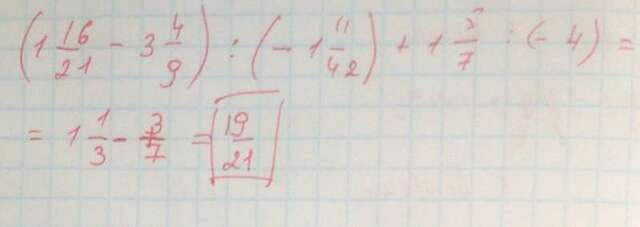 (1 16/21 - 3 4/9) : (- 1 11/42) + 1 5/7 : (- 4) =
= 1 1/3 - 3/7 = 19/21